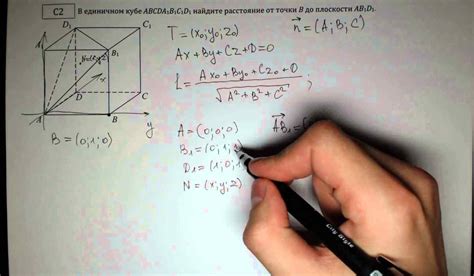 C2 В единичном кубе ABCDA₁B₁C₁D₁ найдите расстояние от точки B до плоскости AB₁D₁.
D₁ C₁
A₁ B₁
D C
A B y
B = (0;1;0)
T = (x₀;y₀;z₀) n⃗ = (A;B;C)
Ax+By+Cz+D=0
L = Ax₀+By₀+Cz₀+D / √A²+B²+C² ;
A = (0;0;0)
B₁ = (0;1;
D₁ = (1;0;1
N = (x;y;z)
AB₁ =